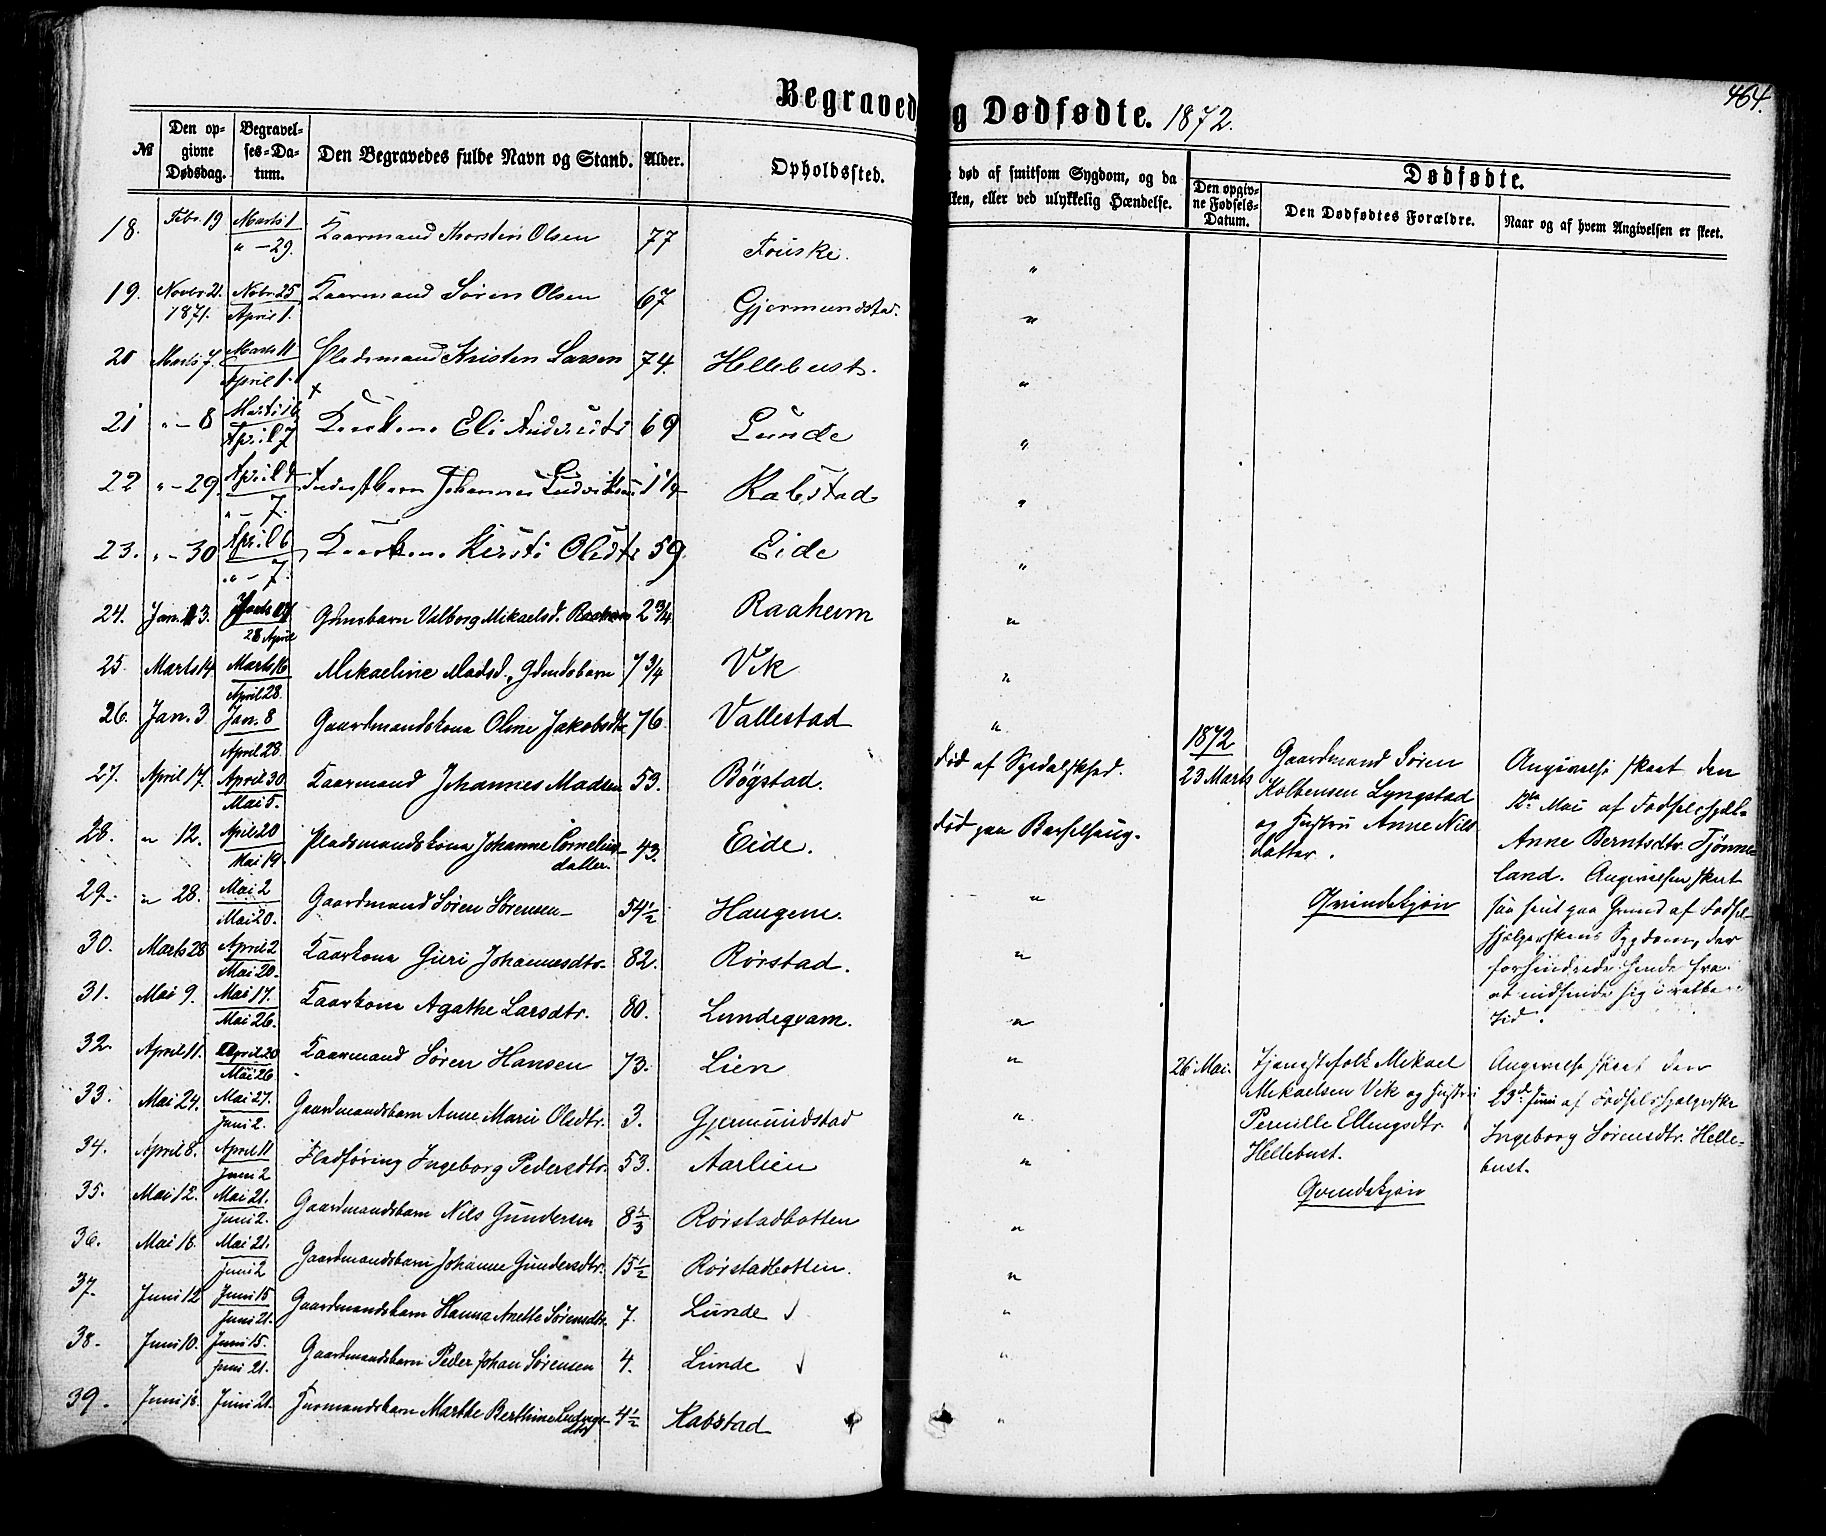 Begraved
g Dødfødte. 1872.
464.
№
Den op-
givne
Dødsdag.
Begravel-
ses-Da-
tum.
Den Begravedes fulde Navn og Stand.
Alder.
Opholdssted.
død af smitsom Sygdom, og da
sken, eller ved ulykkelig Hændelse.
Dødfødte.
Den opgiv-
ne Fødsels-
Datum.
Den Dødfødtes Forældre.
Naar og af hvem Angivelsen er skeet.
18. Febr. 19 Marts 1 Kaarmand Thorsten Olsen 77
" - 29. "
19. Novbr 21. Nobr. 25 Kaarmand Søren Olsen 67 Gjermundstad.
1871. April 1. "
20 Marts 7. Marts 11 Pladsmand Kristen Larsen 74. Hellebust.
April 1. "
21 " - 8 Marts 16 Eli 69 Lunde
April 7 "
22 " - 29. April 4 Johannes 1 1/4 Kabstad
" - 7. "
23. " - 30 April 6 Kirsti Olsdtr 59. Eide
" - 7. "
24. Jan. 13. Valborg Mikaelsd. 2 3/4 Raaheim
28 April "
25. Marts 14 Marts 16 Mikaeline Madsd., 7 3/4 Vik
April 28. "
26. Jan. 3. Jan. 8 Gaardmandskona Oline Jakobsdtr 76. Vallestad
April 28. "
27. April 17. April 30 Kaarmand Johannes Madsen 53. Bøgstad. død af Spedalskhed.
Mai 5.
28. " 12. April 20 Pladsmandskona Johanne Cornelius- 43. Eide. død paa Barselseng.
Mai 19. datter.
29. " 28. Mai 2 Gaardmand Søren Sørensen 54 1/2 Haugene. "
Mai 20.
30. Marts 28 April 2 Kaarkona Guri Johannesdtr. 82. Rørstad. "
Mai 20.
31. Mai 9. Mai 17. Kaarkona Agathe Larsdtr. 80. Lundeqvam. "
Mai 26.
32. April 11. April 20 Kaarmand Søren Hansen 73. Lien "
Mai 26.
33. Mai 24. Mai 27. Gaardmandsbarn Anne Marie Olsdtr. 3. Gjermundstad "
Juni 2.
34. April 8. April 11 Fladføring Ingeborg Pedersdtr. 53. Aarlien "
Juni 2
35. Mai 12. Mai 21. Gaardmandsbarn Nils Gundersen 8 1/3 Rørstadbotten "
Juni 2.
36. Mai 18. Mai 21. Gaardmandsbarn Johanne Gundersdtr. 15 1/2 Rørstadbotten. "
Juni 2
37. Juni 12 Juni 15 Gaardmandsbarn Hanna Anette Sørensdtr. 7. Lunde "
Juni 21.
38. Juni 10. Juni 15. Gaardmandsbarn Peder Johan Sørensen 4. Lunde "
Juni 21.
39. Juni 18. Juni 21. Marthe Berthine 4 1/2 Kabstad "
1872
23 Marts
Gaardmand Søren
Kolbensen Lyngstad
og Hustru Anne Nils-
datter.
Qvindekjøn
Angivelse skeet den
12te Mai af Fødselshjel-
Anne Berntsdtr. Tjønne-
land. Angivelsen skeet
saa sent paa Grund af Fødsel-
hjælperskens Sygdom, der
forhindrede hende fra
at indfinde sig i rette
Tid.
26 Mai.
Tjenestefolk Mikael
Mikaelsen Vik og Hustru
Pernille Ellingsdtr.
Hellebust.
Qvindekjøn
Angivelse skeet den
23de Juni af Fødselshjælperske
Ingeborg Sørensdtr. Helle-
bust.